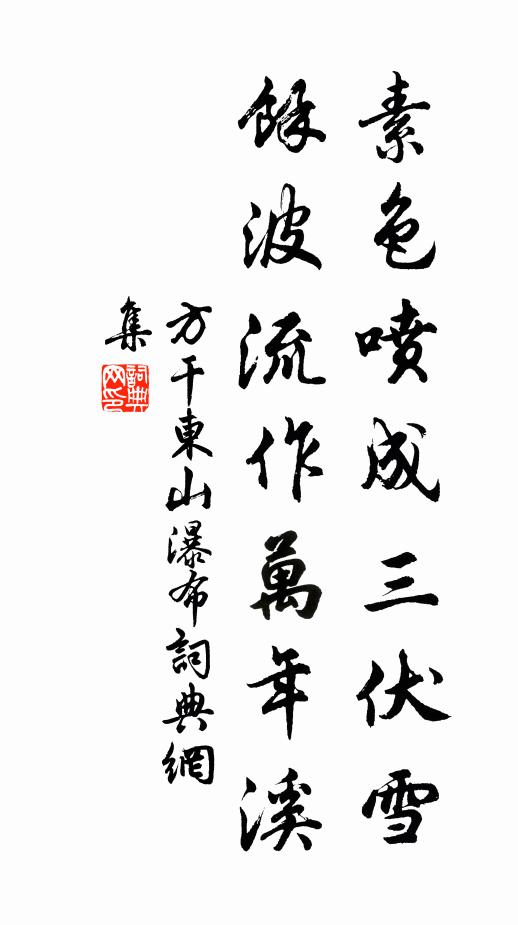 素色噴成三伏雪
餘波流作萬年溪
方干東山瀑布詞典網
集
詞典网印